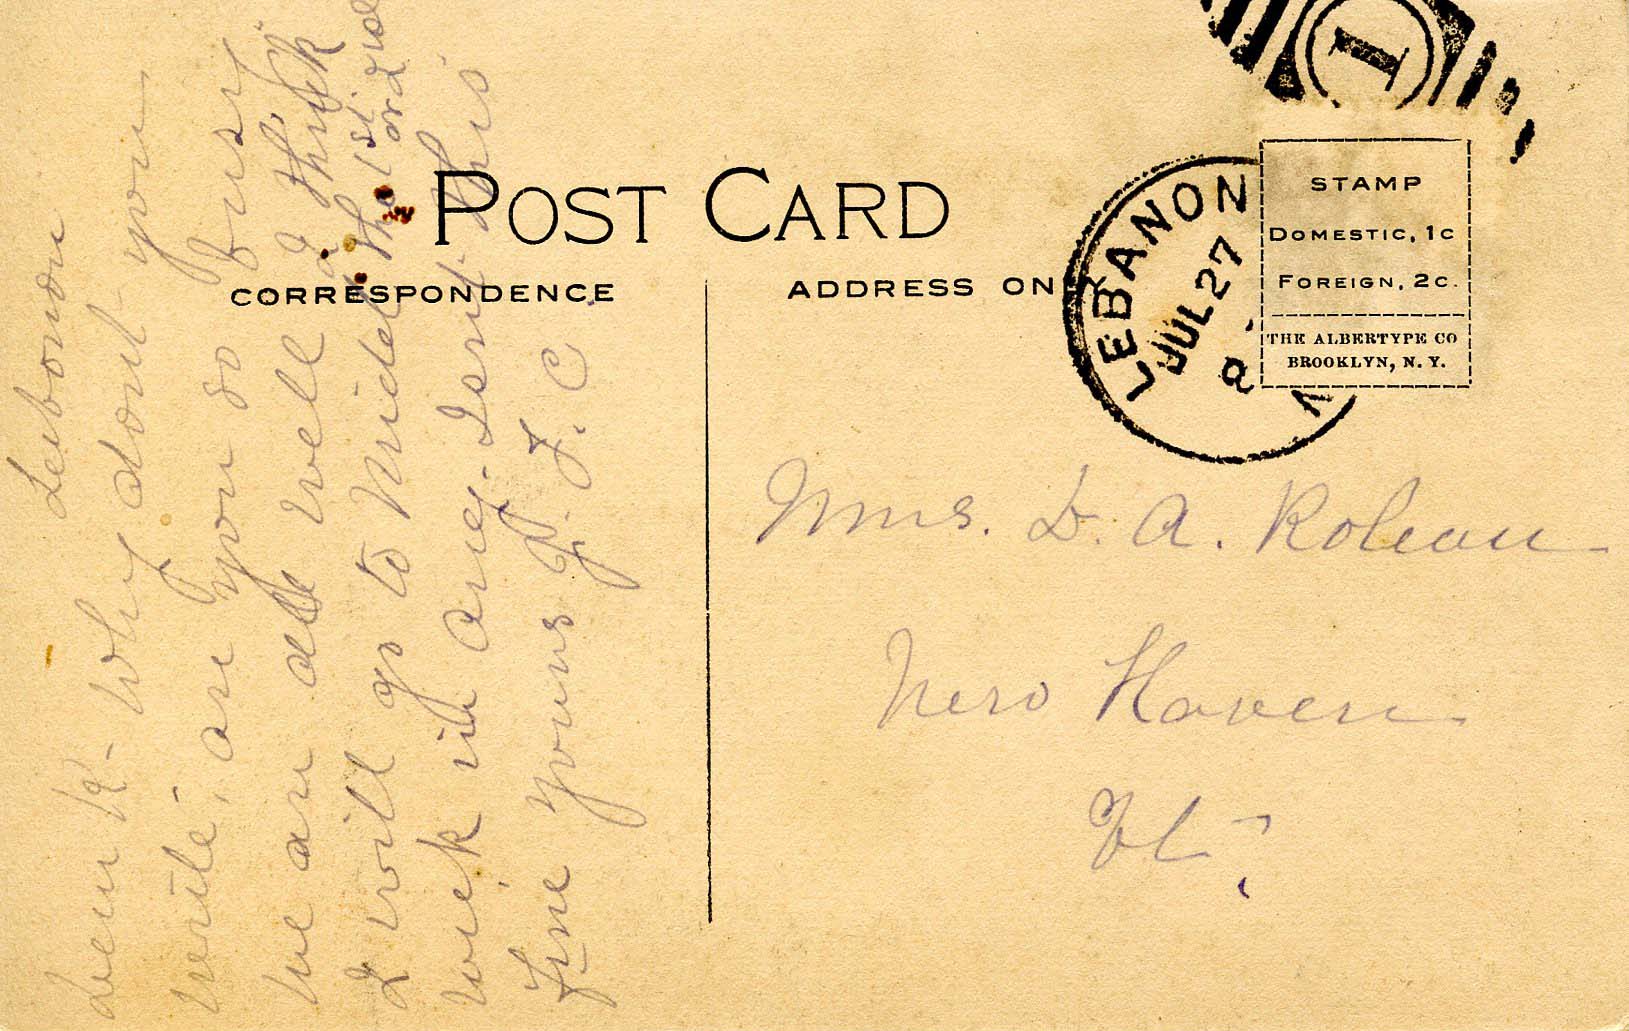 POST CARD
CORRESPONDENCE
ADDRESS ONLY
STAMP
DOMESTIC, 1C
FOREIGN, 2C.
THE ALBERTYPE CO
BROOKLYN, N. Y.
LEBANON
JUL 27
1
Lebonon
Dear K- Why dont you
write, are you so busy
We are all well I think
I will go to Midd the 1st or 2nd
week in Aug. Isnt this
fine Yours J. F. C.
Mrs. D. A. Roleau
New Haven
Vt.